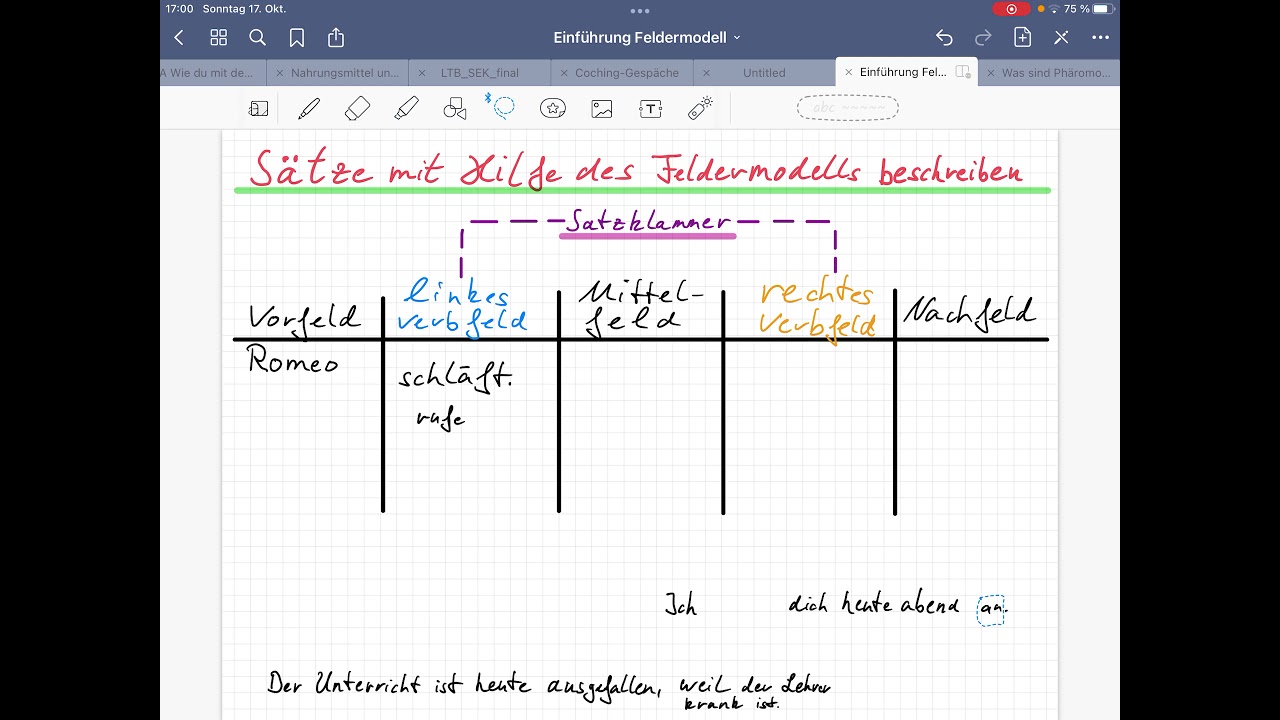 17:00 Sonntag 17. Okt.
75 %
Einführung Feldermodell
A Wie du mit de...
Nahrungsmittel un...
LTB_SEK_final
Coching-Gespäche
Untitled
Einführung Fel...
Was sind Phäromo...
abc
Sätze mit Hilfe des Feldermodells beschreiben
Satzklammer
Vorfeld
linkes
verbfeld
Mittel-
feld
rechtes
verbfeld
Nachfeld
Romeo
schläft.
rufe
Ich dich heute abend an.
Der Unterricht ist heute ausgefallen, weil der Lehrer
krank ist.